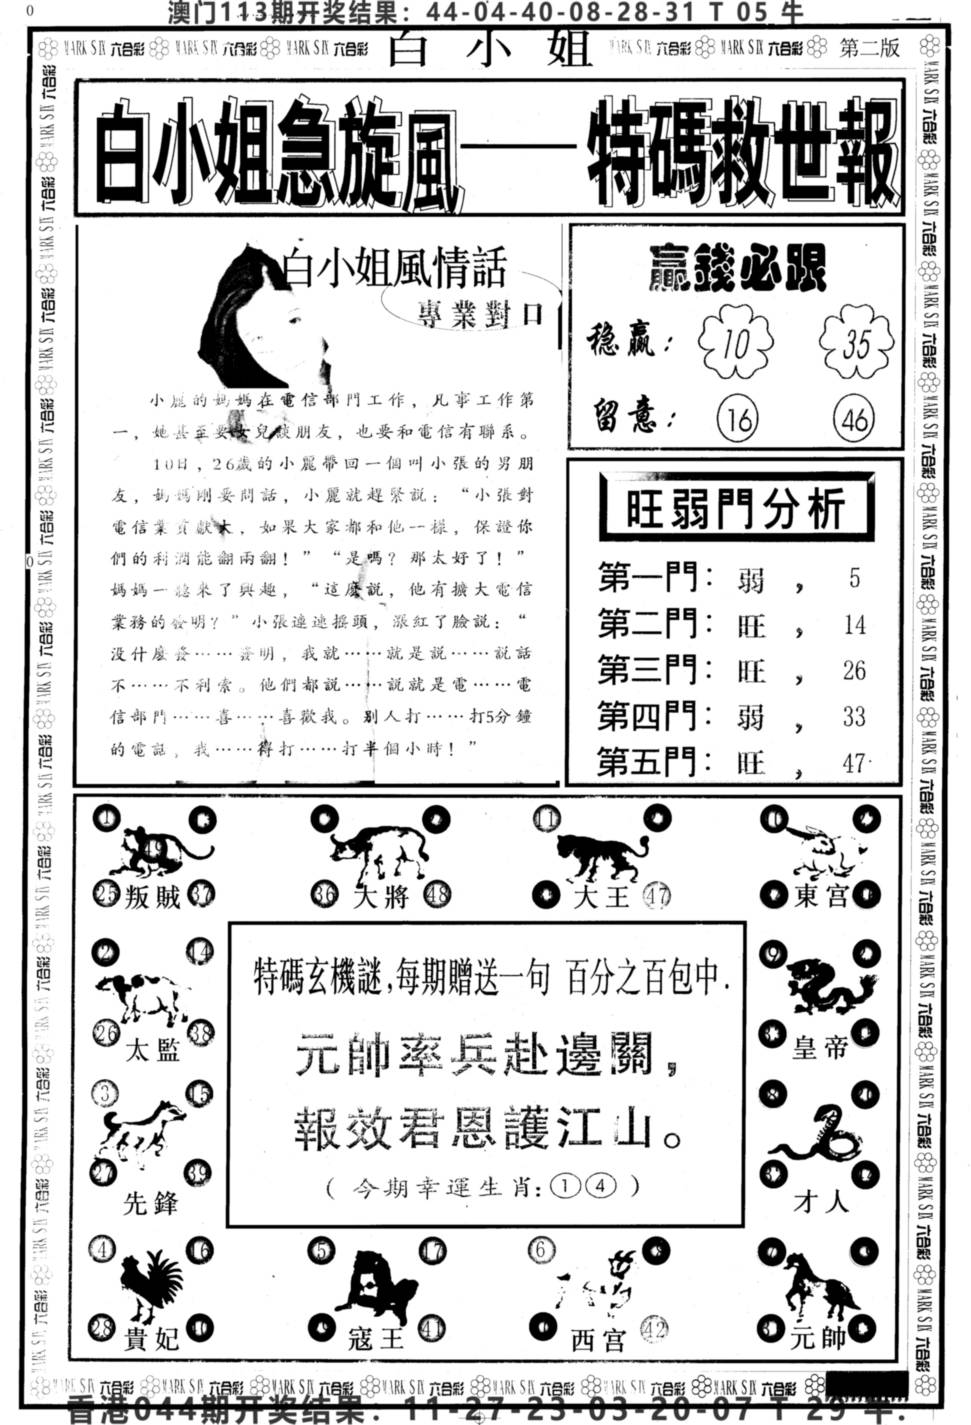 澳门113期开奖结果：44-04-40-08-28-31 T 05 牛
白小姐
第二版
MARK SIX 六合彩
白小姐急旋風——特碼救世報
白小姐風情話
專業對口
小麗的媽媽在電信部門工作，凡事工作第
一，她甚至要女兒談朋友，也要和電信有聯系。
10日，26歲的小麗帶回一個叫小張的男朋
友，媽媽剛要問話，小麗就趕緊説：“小張對
電信業貢獻大，如果大家都和他一樣，保證你
們的利潤能翻兩翻！”“是嗎？那太好了！”
媽媽一聽來了興趣，“這麽説，他有擴大電信
業務的發明？”小張連連摇頭，漲紅了臉説：“
没什麽發……發明，我就……就是説……説話
不……不利索。他們都説……説就是電……電
信部門……喜……喜歡我。别人打……打5分鐘
的電話，我……得打……打半個小時！”
贏錢必跟
稳赢：10 35
留意：16 46
旺弱門分析
第一門：弱，5
第二門：旺，14
第三門：旺，26
第四門：弱，33
第五門：旺，47
1
19
25 叛賊 37
36 大將 48
11
大王 47
東宫
2 14
26 太監 38
皇帝
3 15
27 先鋒 39
才人
特碼玄機謎，每期贈送一句 百分之百包中.
元帥率兵赴邊關，
報效君恩護江山。
（今期幸運生肖：①④）
4 16
28 貴妃
5 17
寇王 41
6
西宫 42
元帥
香港044期开奖结果：11-27-23-03-20-07 T 29 羊